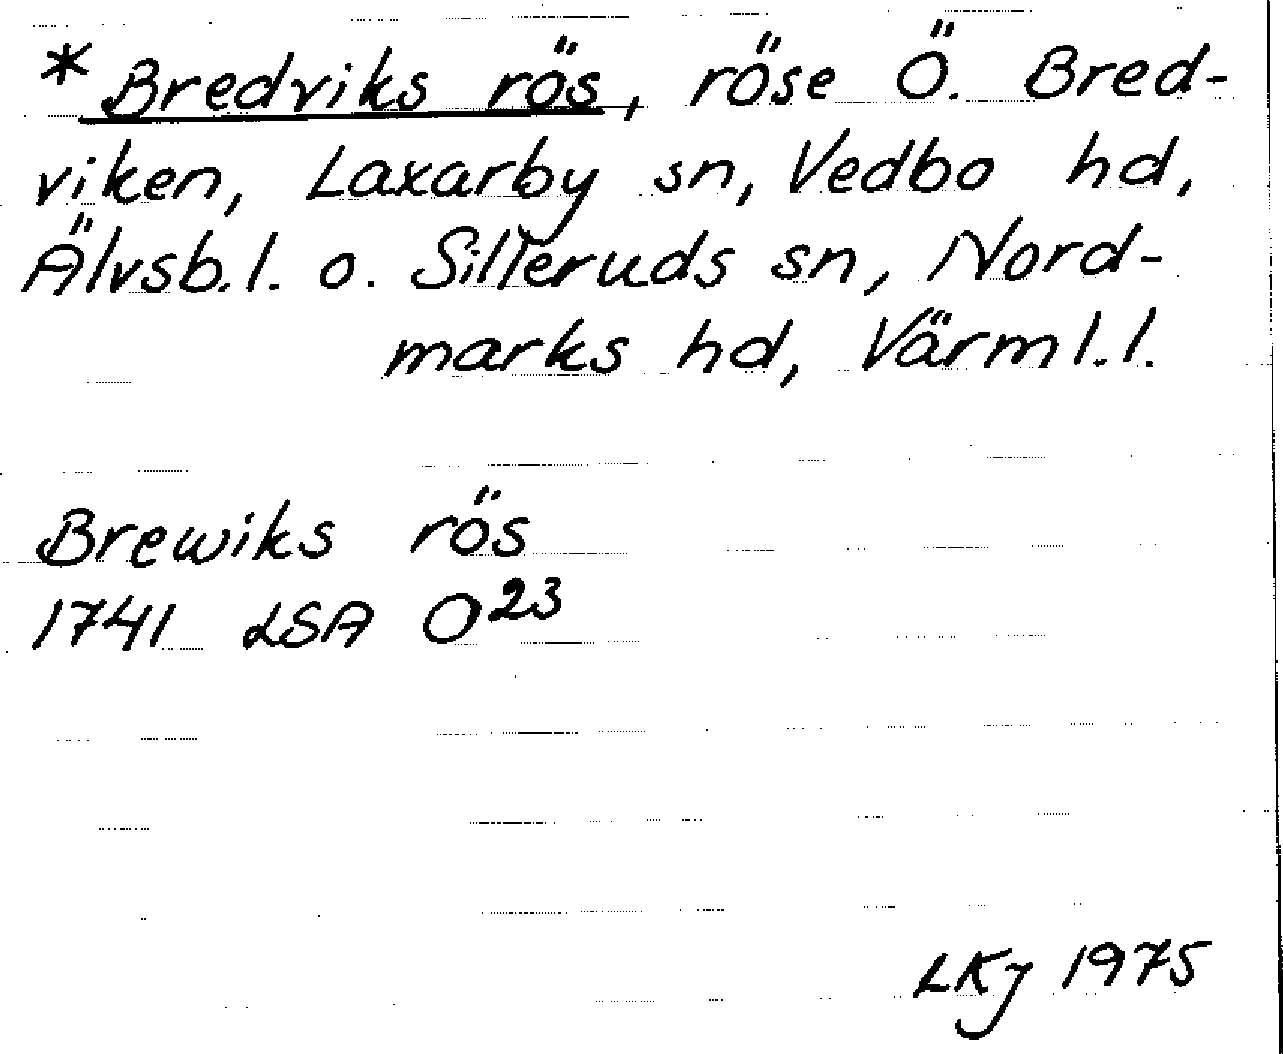 * Bredviks rös, röse Ö. Bred-
viken, Laxarby sn, Vedbo hd,
Älvsb.l. o. Silleruds sn, Nord-
marks hd, Värml.l.
Brewiks rös
1741 LSA O23
LKj 1975